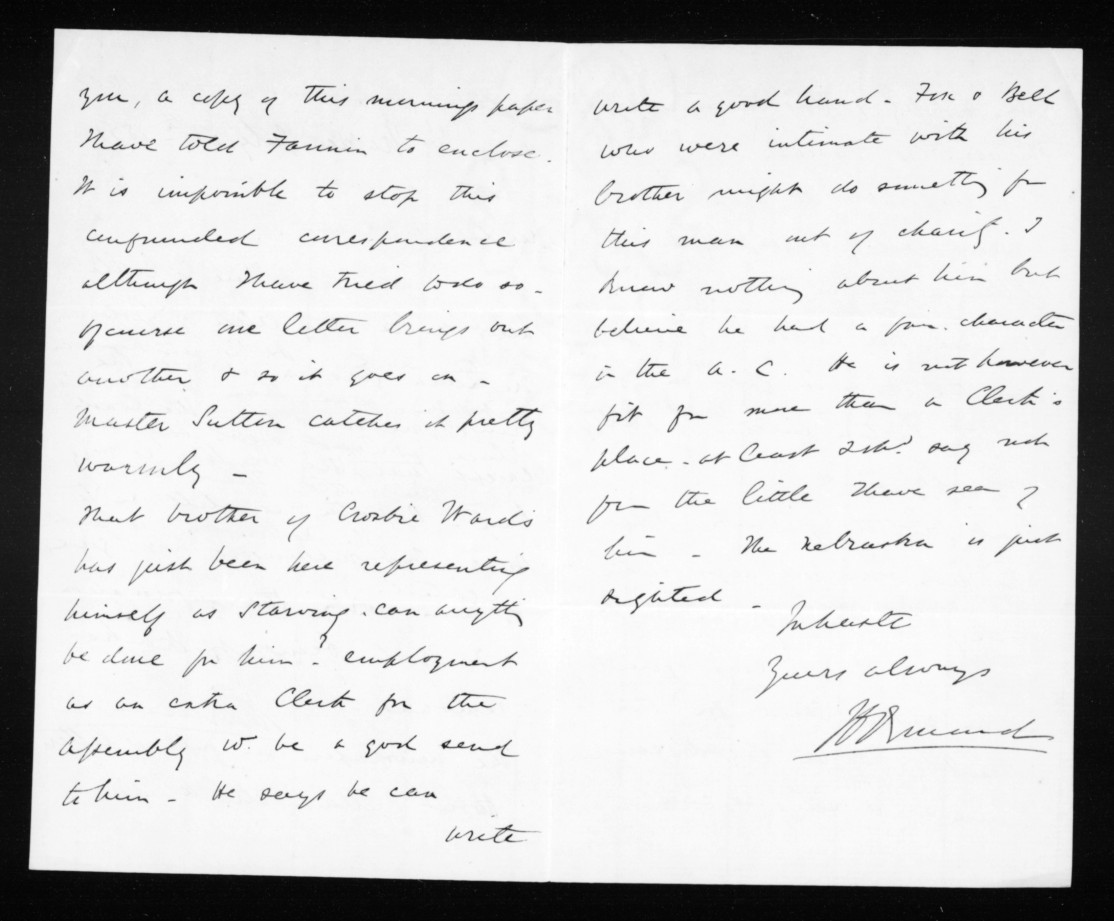 you, a copy of this mornings paper
I have told Fannin to enclose.
It is impossible to stop this
confounded correspondence
although I have tried to do so -
of course one letter brings out
another, & so it goes on -
Master Sutton catches it pretty
warmly -
That brother of Crosbie Ward's
has just been here representing
himself as starving. can anything
be done for him? employment
as an extra Clerk for the
Assembly wd. be a god send
to him - He says he can
write
write a good hand - Fox & Bell
who were intimate with his
brother might do something for
this man out of charity. I
know nothing about him but
believe he had a fair character
in the A. C. He is not however
fit for more than a Clerk's
place - at least I shd. say not
from the little I have seen of
him - The Nebraska is just
sighted -
In haste
Yours always
J D Ormond